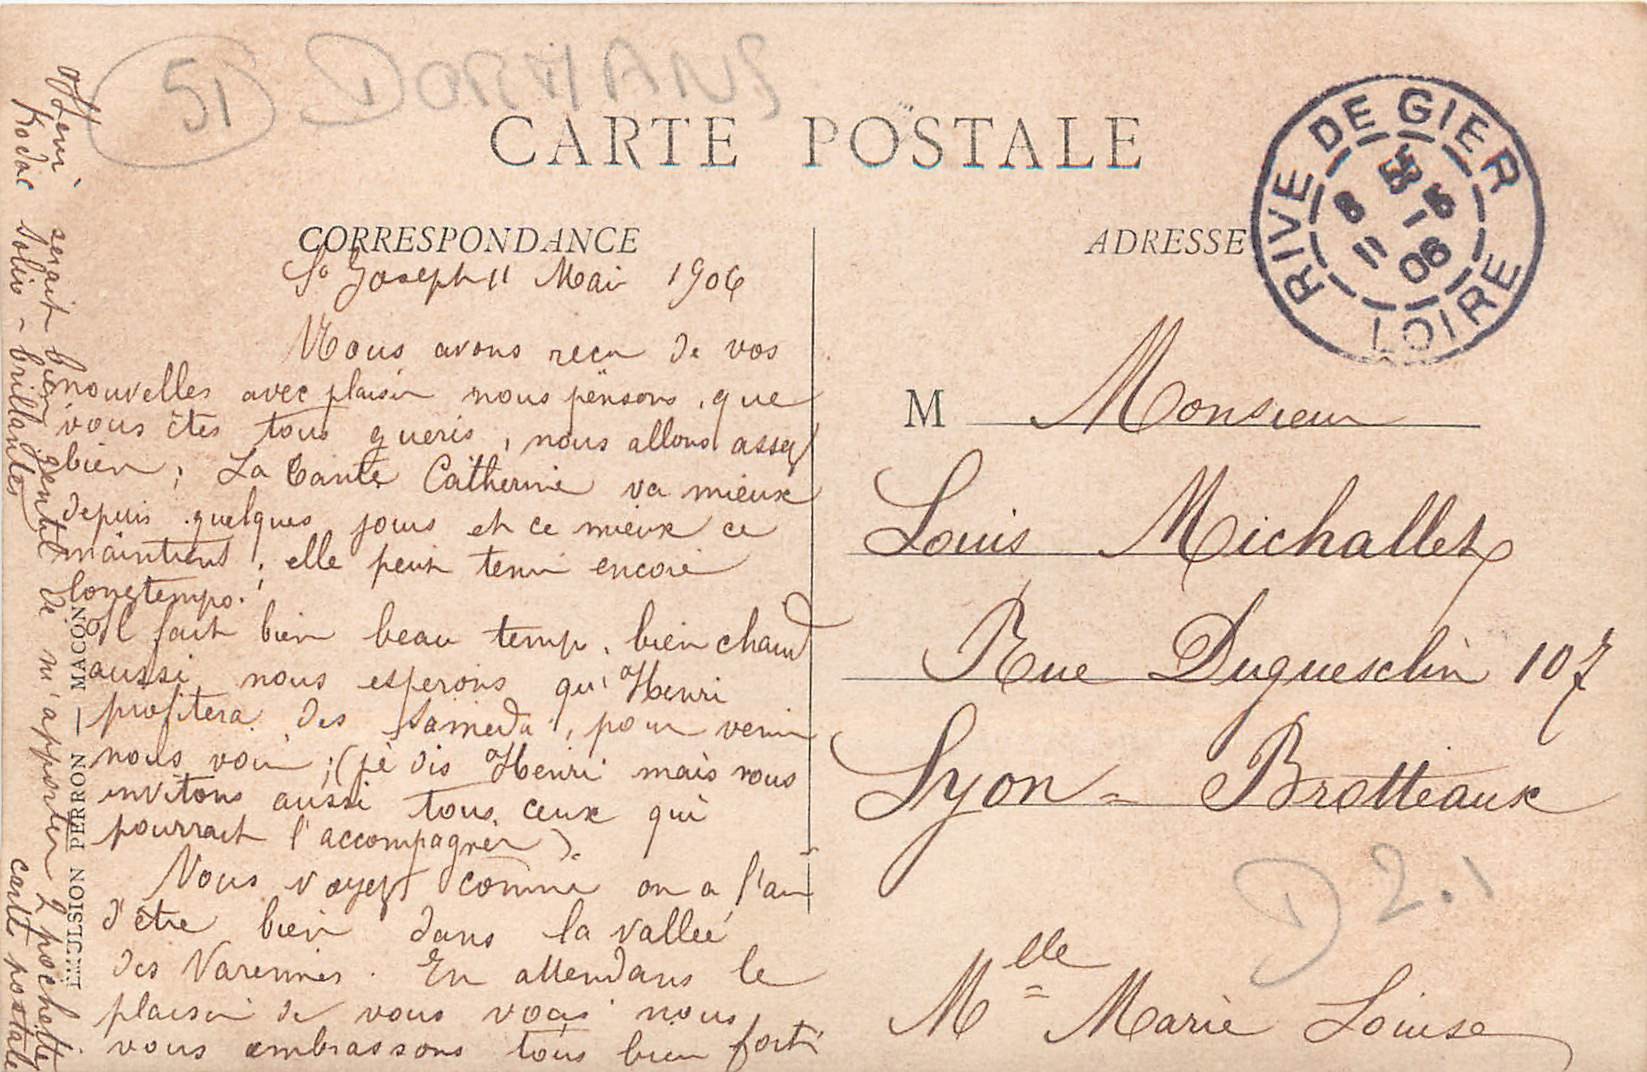 51 DORMANS
CARTE POSTALE
CORRESPONDANCE
ADRESSE
RIVE DE GIER
8 11 -5 06
LOIRE
St Joseph 11 Mai 1906
Nous avons reçu de vos
nouvelles avec plaisir nous pensons que
vous êtes tous gueris, nous allons assez
bien ; La tante Catherine va mieux
depuis quelques jours et ce mieux ce
maintient, elle peut tenir encore
longtemps.
Il fait bien beau temp, bien chaud
aussi, nous esperons qu'Henri
profitera des samedi, pour venir
nous voir ; (je dis Henri mais nous
invitons aussi tous ceux qui
pourrait l'accompagner).
Vous voyez comme on a l'air
d'être bien dans la vallée
des Varennes. En attendans le
plaisir de vous voir nous
vous embrassons tous bien fort
Henri serait bien gentil de m'apporter 2 pochettes
Kodac Solio - brillantes carte postale
EMULSION PERRON — MACON
M Monsieur
Louis Michallet
Rue Duguesclin 107
Lyon = Brotteaux
D 2.1
Mlle Marie Louise